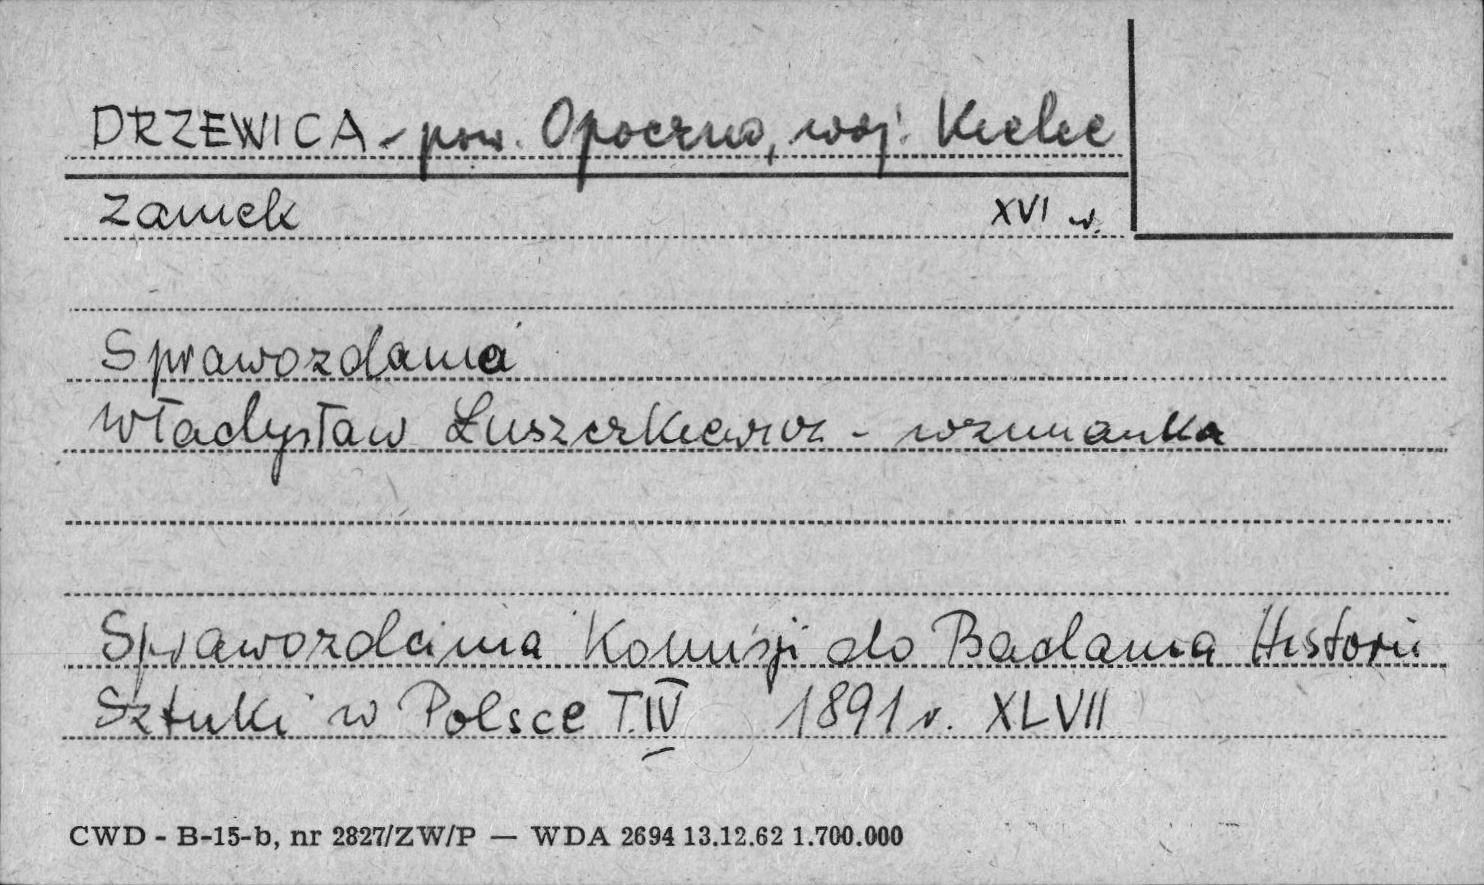 DRZEWICA - pow. Opoczno, woj. Kielce
Zamek XVI w.
Sprawozdania
Władysław Łuszczkiewicz - wzmianka
Sprawozdania Komisji do Badania Historii
Sztuki w Polsce T.IV 1891 r. XLVII
CWD - B-15-b, nr 2827/ZW/P — WDA 2694 13.12.62 1.700.000